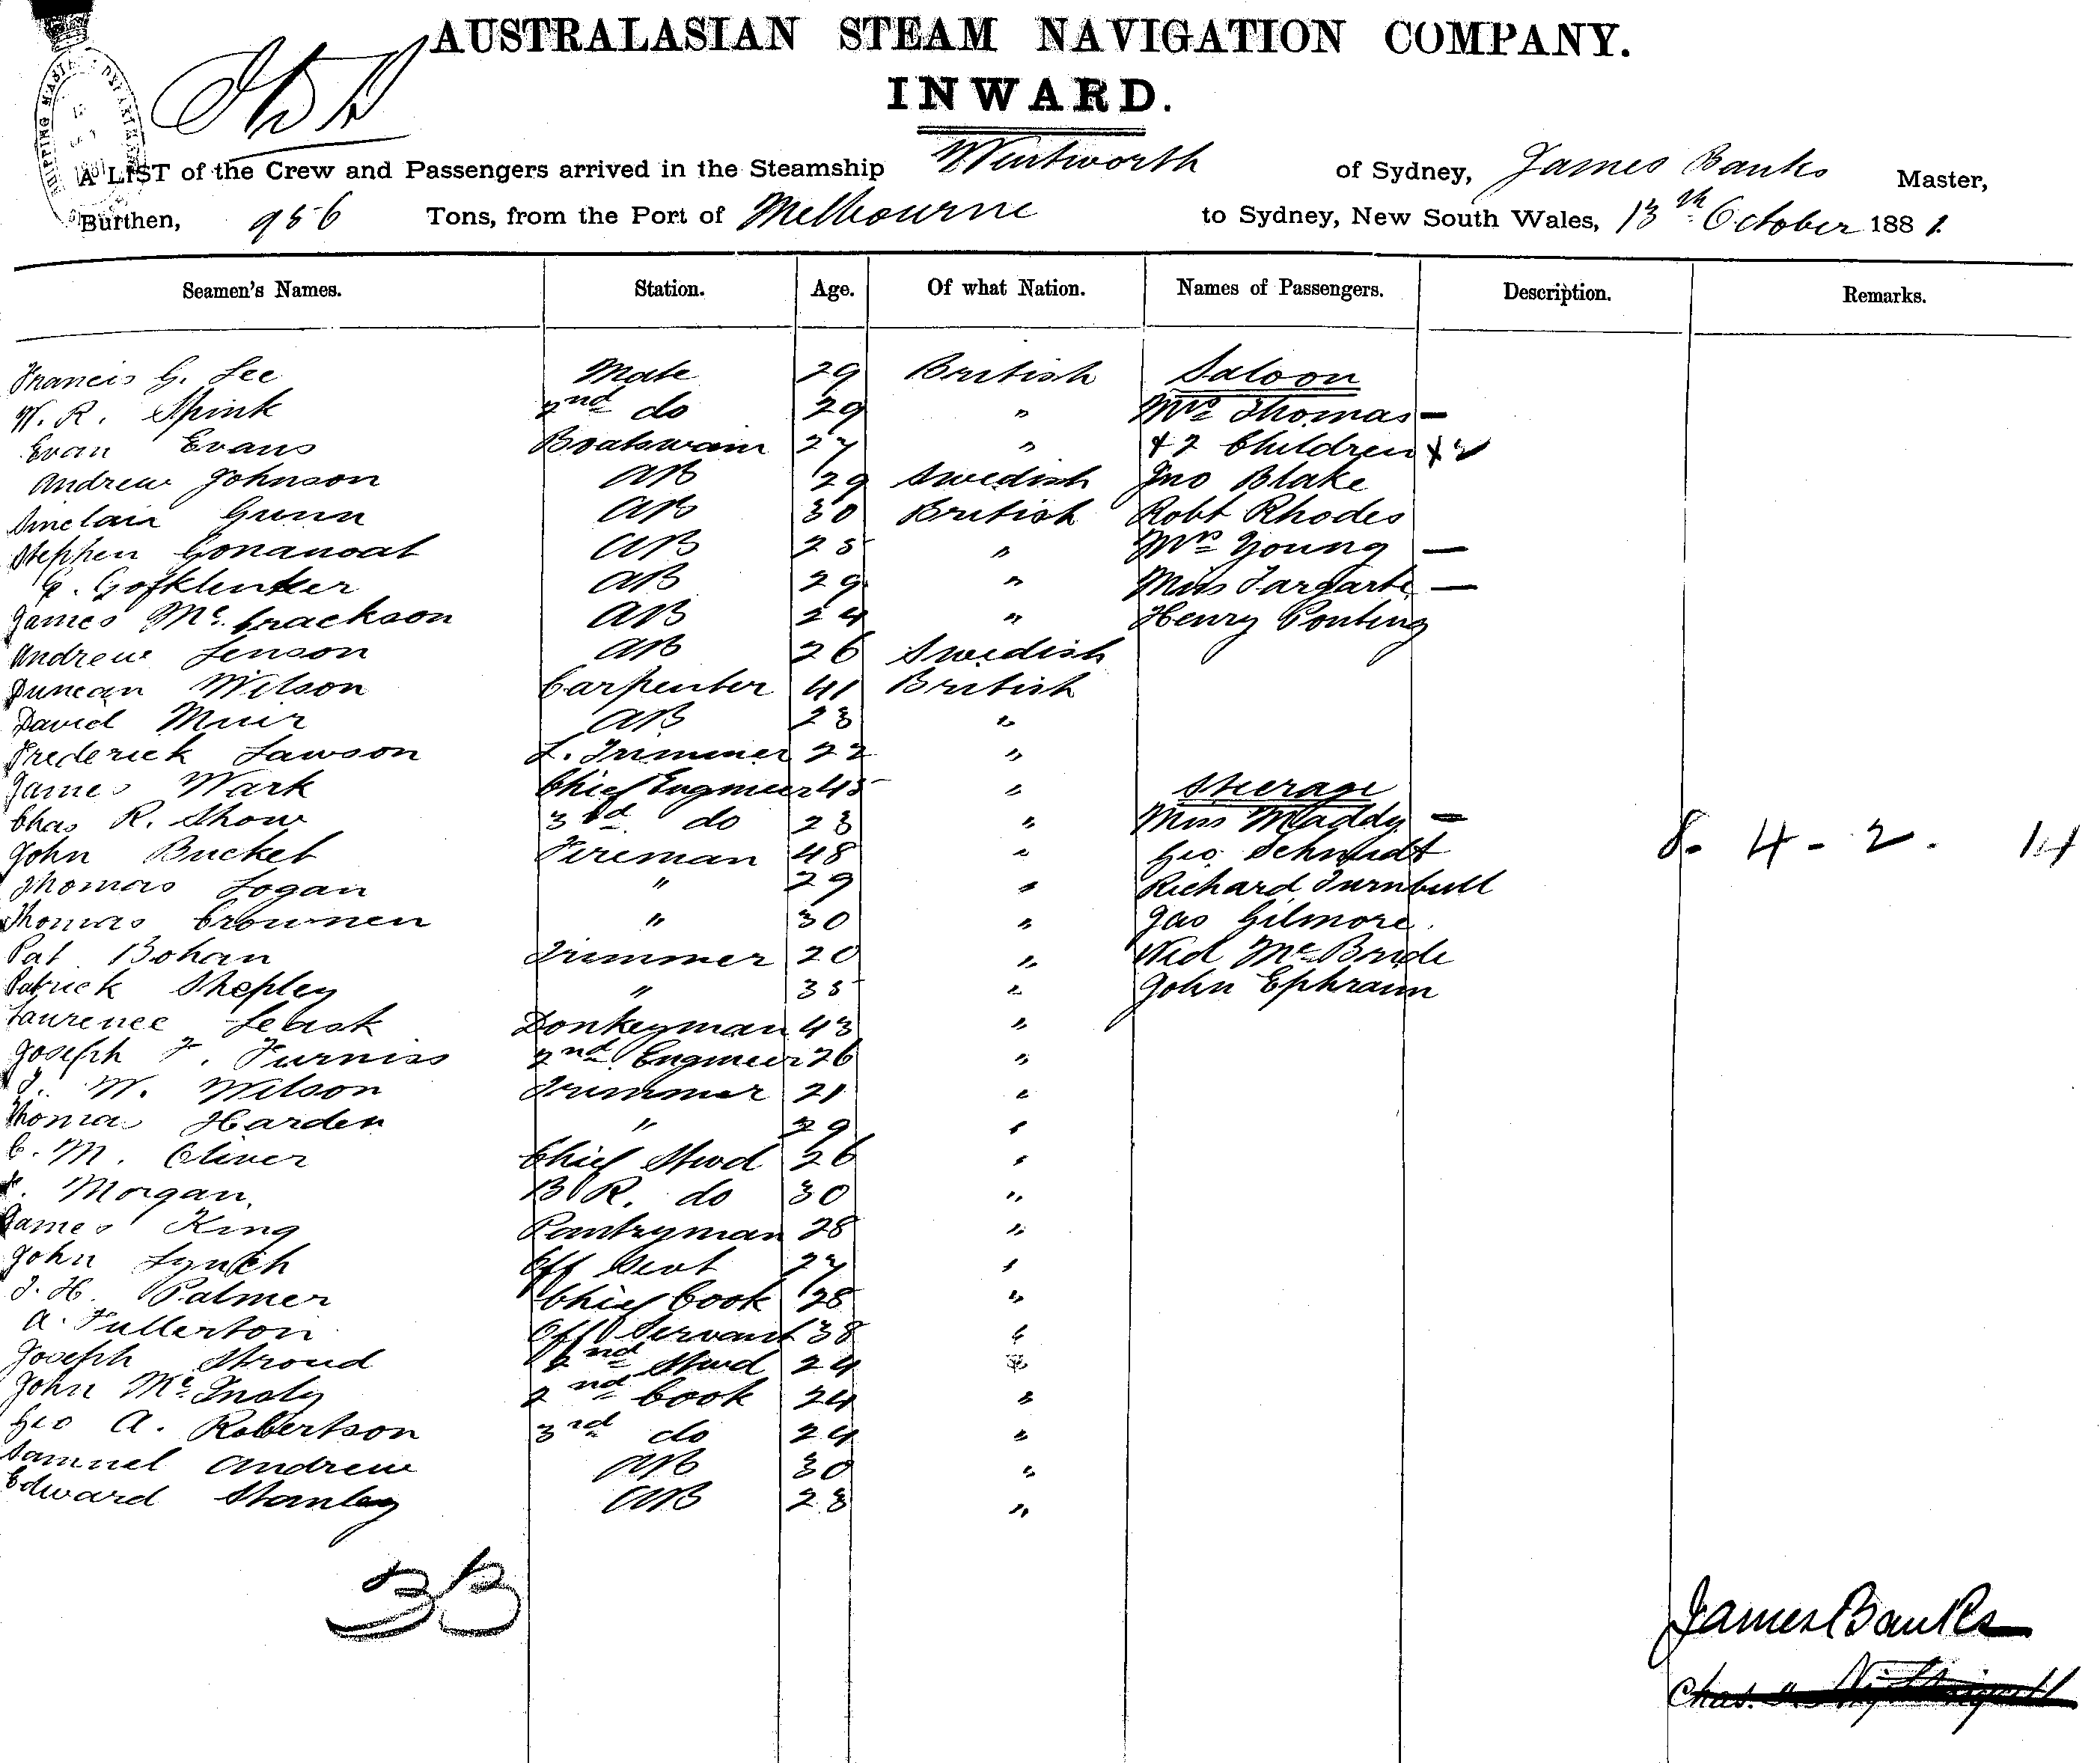 AUSTRALASIAN STEAM NAVIGATION COMPANY.
INWARD.
A LIST of the Crew and Passengers arrived in the Steamship Wentworth of Sydney, James Banks Master,
Burthen, 956 Tons, from the Port of Melbourne to Sydney, New South Wales, 13th October 1881.
Seamen's Names. Station. Age. Of what Nation. Names of Passengers. Description. Remarks.
Francis G. Lee Mate 29 British Saloon
W. R. Spink 2nd do 29 " Mrs Thomas —
Evan Evans Boatswain 27 " + 2 Children + 2
Andrew Johnson AB 29 Swedish Jno Blake
Sinclair Gunn AB 30 British Robt Rhodes
Stephen AB 25 " Mrs Young —
G. AB 29 " Miss —
James Mc Crackson AB 24 " Henry Ponting
Andrew Jenson AB 26 Swedish
Duncan Wilson Carpenter 41 British
David Muir AB 23 "
Frederick Lawson L. Trimmer 22 "
James Wark Chief Engineer 45 " Steerage
Chas R. Show 3rd do 23 " Miss Maddy —
John Bucket Fireman 48 " Geo Schmidt 8 - 4 - 2 . 14
Thomas Logan " 29 " Richard Turnbull
Thomas Crownen " 30 " Jas Gilmore
Pat Bohan Trimmer 20 " Wid McBride
Patrick Shepley " 35 " John Ephraim
Laurence Leask Donkeyman 43 "
Joseph F. Furniss 2nd Engineer 26 "
J. W. Wilson Trimmer 21 "
Thomas Harden " 29 "
C. M. Oliver Chief Stwd 26 "
Morgan B R. do 30 "
James King Pantryman 28 "
John Lynch Off Servt 27 "
J. H. Palmer Chief Cook 28 "
A. Fullerton Off Servant 38 "
Joseph Stroud 2nd Stwd 24 "
John Mc 2nd Cook 24 "
Geo A. Robertson 3rd do 24 "
Samuel Andrew AB 30 "
Edward Stanley AB 23 "
James Banks
Chas.